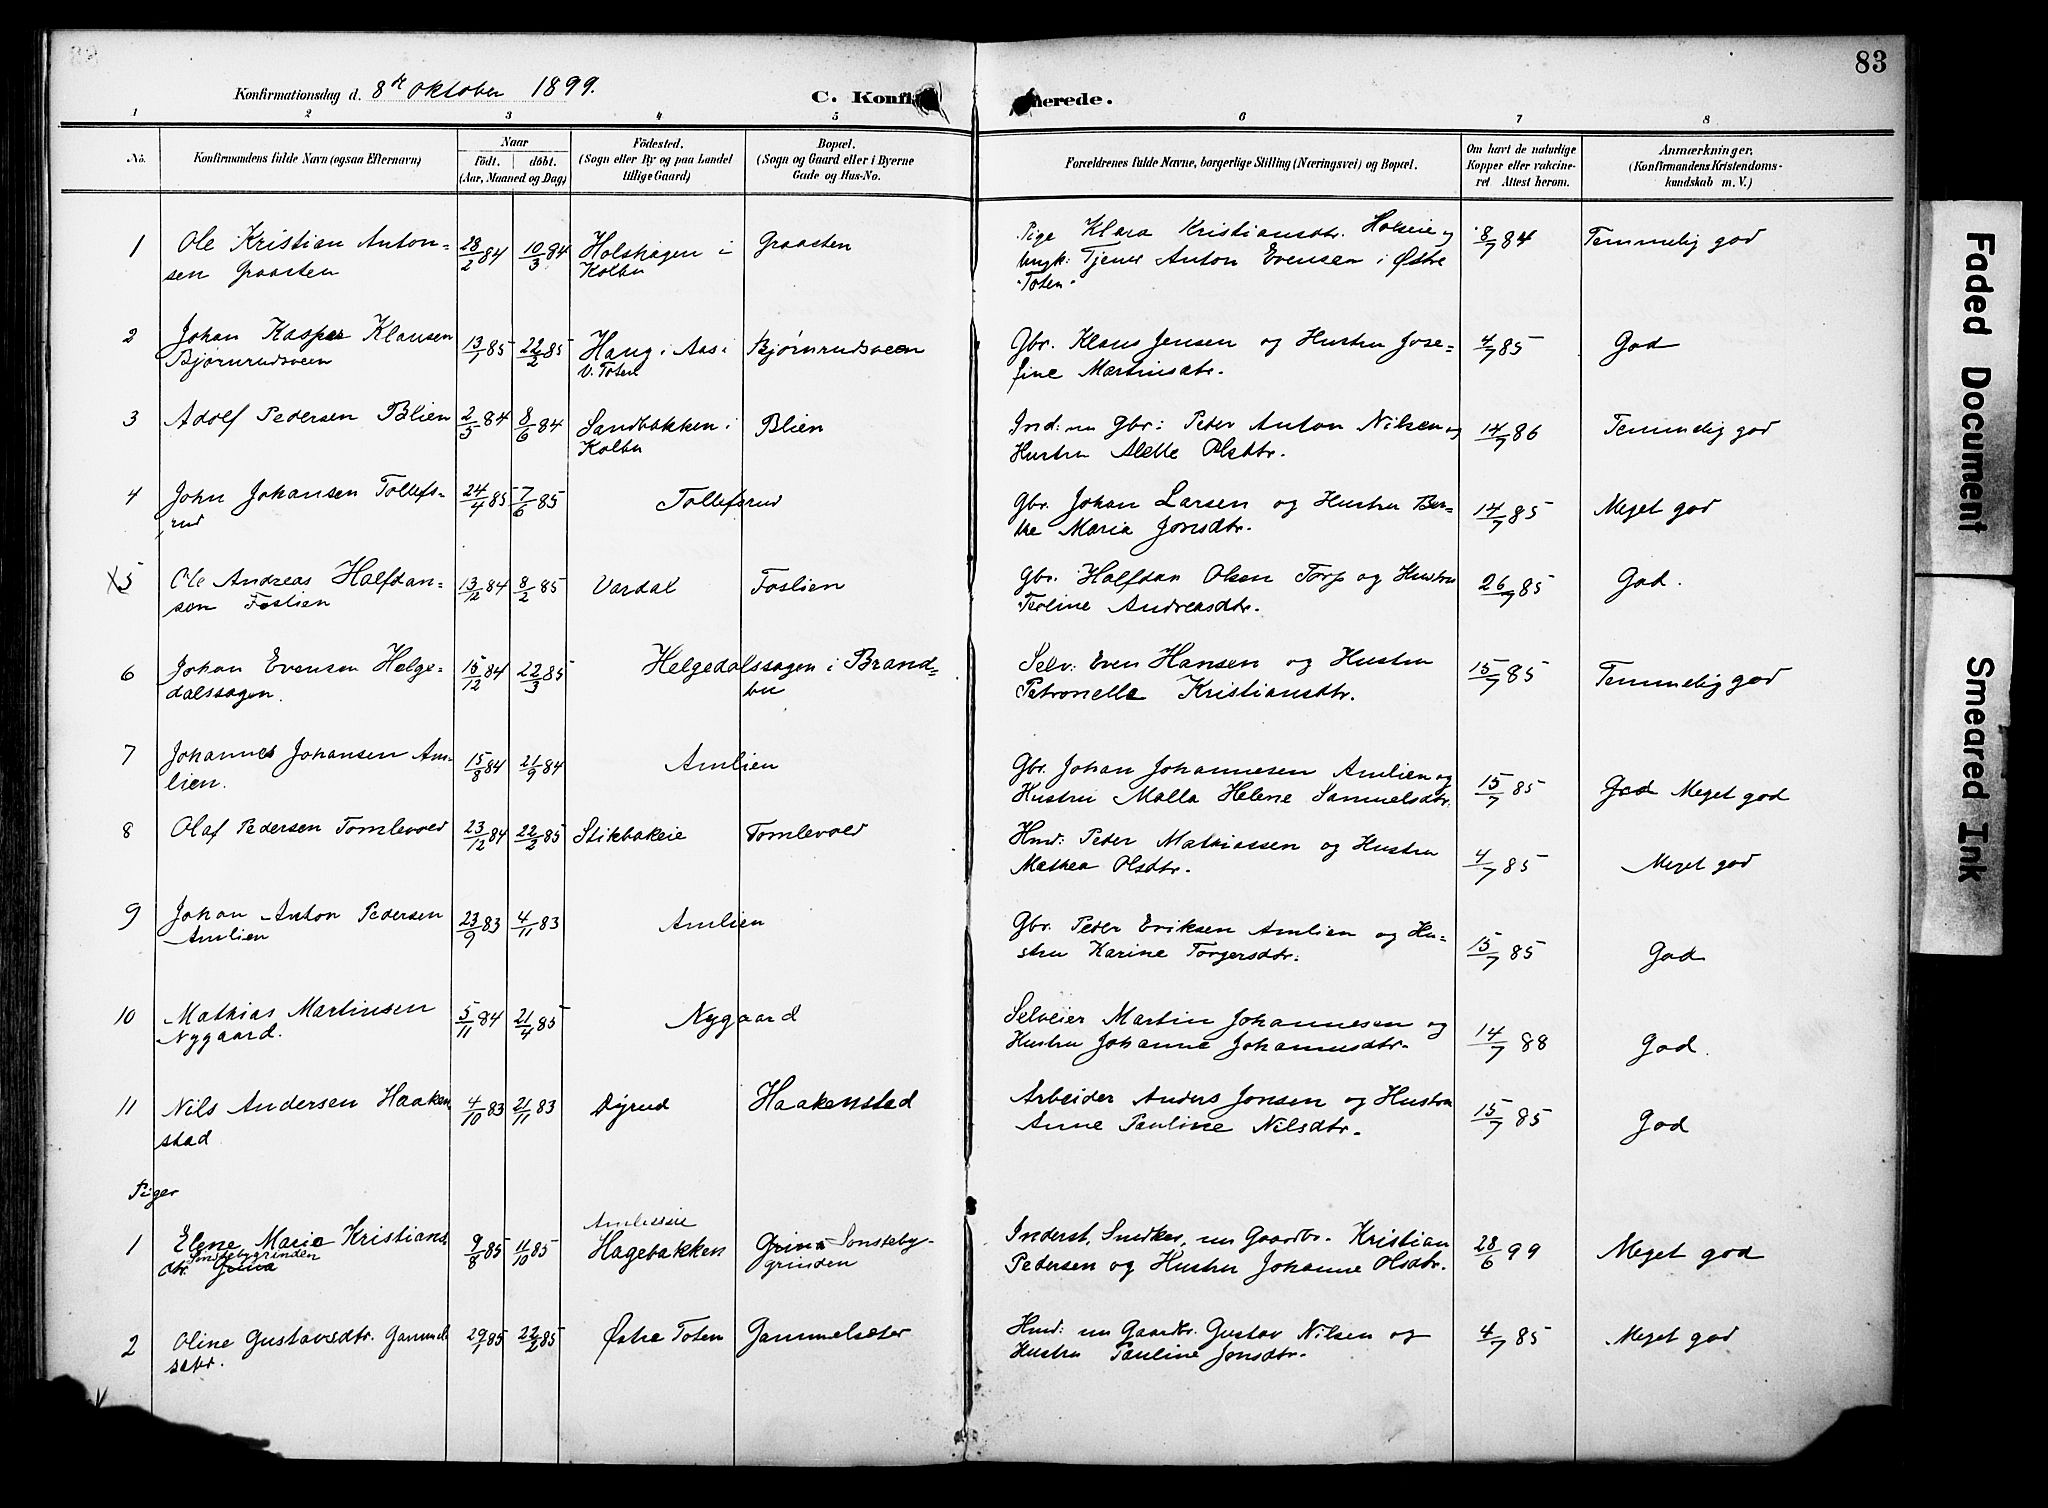 83
Konfirmationsdag d. 8de Oktober 1899.
C. Konfi
merede.
1 2 3 4 5 6 7 8
No. Konfirmandens fulde Navn (ogsaa Efternavn) Naar födt. döbt. (Aar, Maaned og Dag) Födested. (Sogn eller By og paa Landet tillige Gaard) Bopæl. (Sogn og Gaard eller i Byerne Gade og Hus-No. Forældrenes fulde Navne, borgerlige Stilling (Næringsvei) og Bopæl. Om havt de naturlige Kopper eller vakcineret Attest herom. Anmærkninger. (Konfirmandens Kristendomskundskab m. V.)
1 Ole Kristian Anton- 28/2 84 10/3 84 Holskagen i Graasten Pige Klara Kristiansdtr. Holseie og 8/7 84 Temmelig god
sen Graasten Kolbu ungk: Tjener Anton Evensen i Østre
Toten
2 Johan Kasper Klausen 13/1 85 22/2 85 Haug i Aas i Bjørnrudsveen Gbr. Klaus Jensen og Hustru Jose- 4/7 85 God
Bjørnrudsveen V. Toten fine Martinsdtr.
3 Adolf Pedersen Blien 2/5 84 8/6 84 Sandbakken i Blien Ind: nu Gbr: Peder Anton Nilsen og 14/7 86 Temmelig god
Kolbu Hustru Alette Olsdtr.
4 John Johansen Tollefs- 24/4 85 7/6 85 Tollefsrud Gbr. Johan Larsen og Hustru Ber- 14/7 85 Meget god
rud the Maria Jonsdtr.
5 Ole Andreas Halfdan- 13/12 84 8/2 85 Vardal Foslien Gbr. Halfdan Olsen Torp og Hustru 26/7 85 God.
sen Foslien Teoline Andreasdtr.
6 Johan Evensen Helge- 15/12 84 22/3 85 Helgedalssagen i Brand- Selv: Even Hansen og Hustru 15/7 85 Temmelig god
dalssagen. bu Petronelle Kristiansdtr.
7 Johannes Johansen Am- 15/8 84 21/9 84 Amlien Gbr. Johan Johannesen Amlien og 15/7 85 God Meget god
lien. Hustru Malla Helene Samuelsdtr.
8 Olaf Pedersen Tomlevold 23/12 84 22/2 85 Stikbakeie Tomlevold Hmd: Peder Mathiassen og Hustru 4/7 85 Meget god
Mathea Olsdtr.
9 Johan Anton Pedersen 23/9 83 4/11 83 Amlien Gbr. Peder Eriksen Amlien og Hu- 15/7 85 God
Amlien stru Karine Torgersdtr.
10 Mathias Martinsen 5/11 84 21/4 85 Nygaard Selveier Martin Johannesen og 14/7 88 God.
Nygaard. Hustru Johanne Johannesdtr.
11 Nils Andersen Haaken 4/10 83 21/11 83 Dyrud Haakenstad Arbeider Anders Jonsen og Hustru 15/7 85 God
stad Anne Pauline Nilsdtr.
Piger
1 Elene Marie Kristians 9/8 85 11/10 85 Hagebakken Grina Sønsteby- Inderst, Smedkar, nu Gaardbr. Kristian 28/6 99 Meget god
Sønstebygrinden
dtr. Grina grinden Pedersen og Hustru Johanne Olsdtr.
2 Oline Gustavsdtr. Gammel 29/1 85 22/2 85 Østre Toten Gammelsæter Hmd: nu Gaardbr. Gustav Nilsen og 4/7 85 Meget god
sæter. Hustru Pauline Jonsdtr.
Faded Document
Smeared Ink